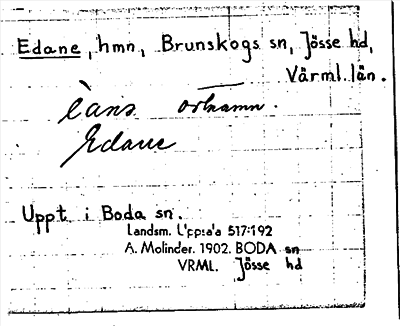 Edane, hmn, Brunskogs sn, Jösse hd,
Värml. län.
ortnamn.
Edane
Uppt. i Boda sn.
Landsm. Uppsala 517:192
A. Molinder. 1902. BODA sn
VRML. Jösse hd